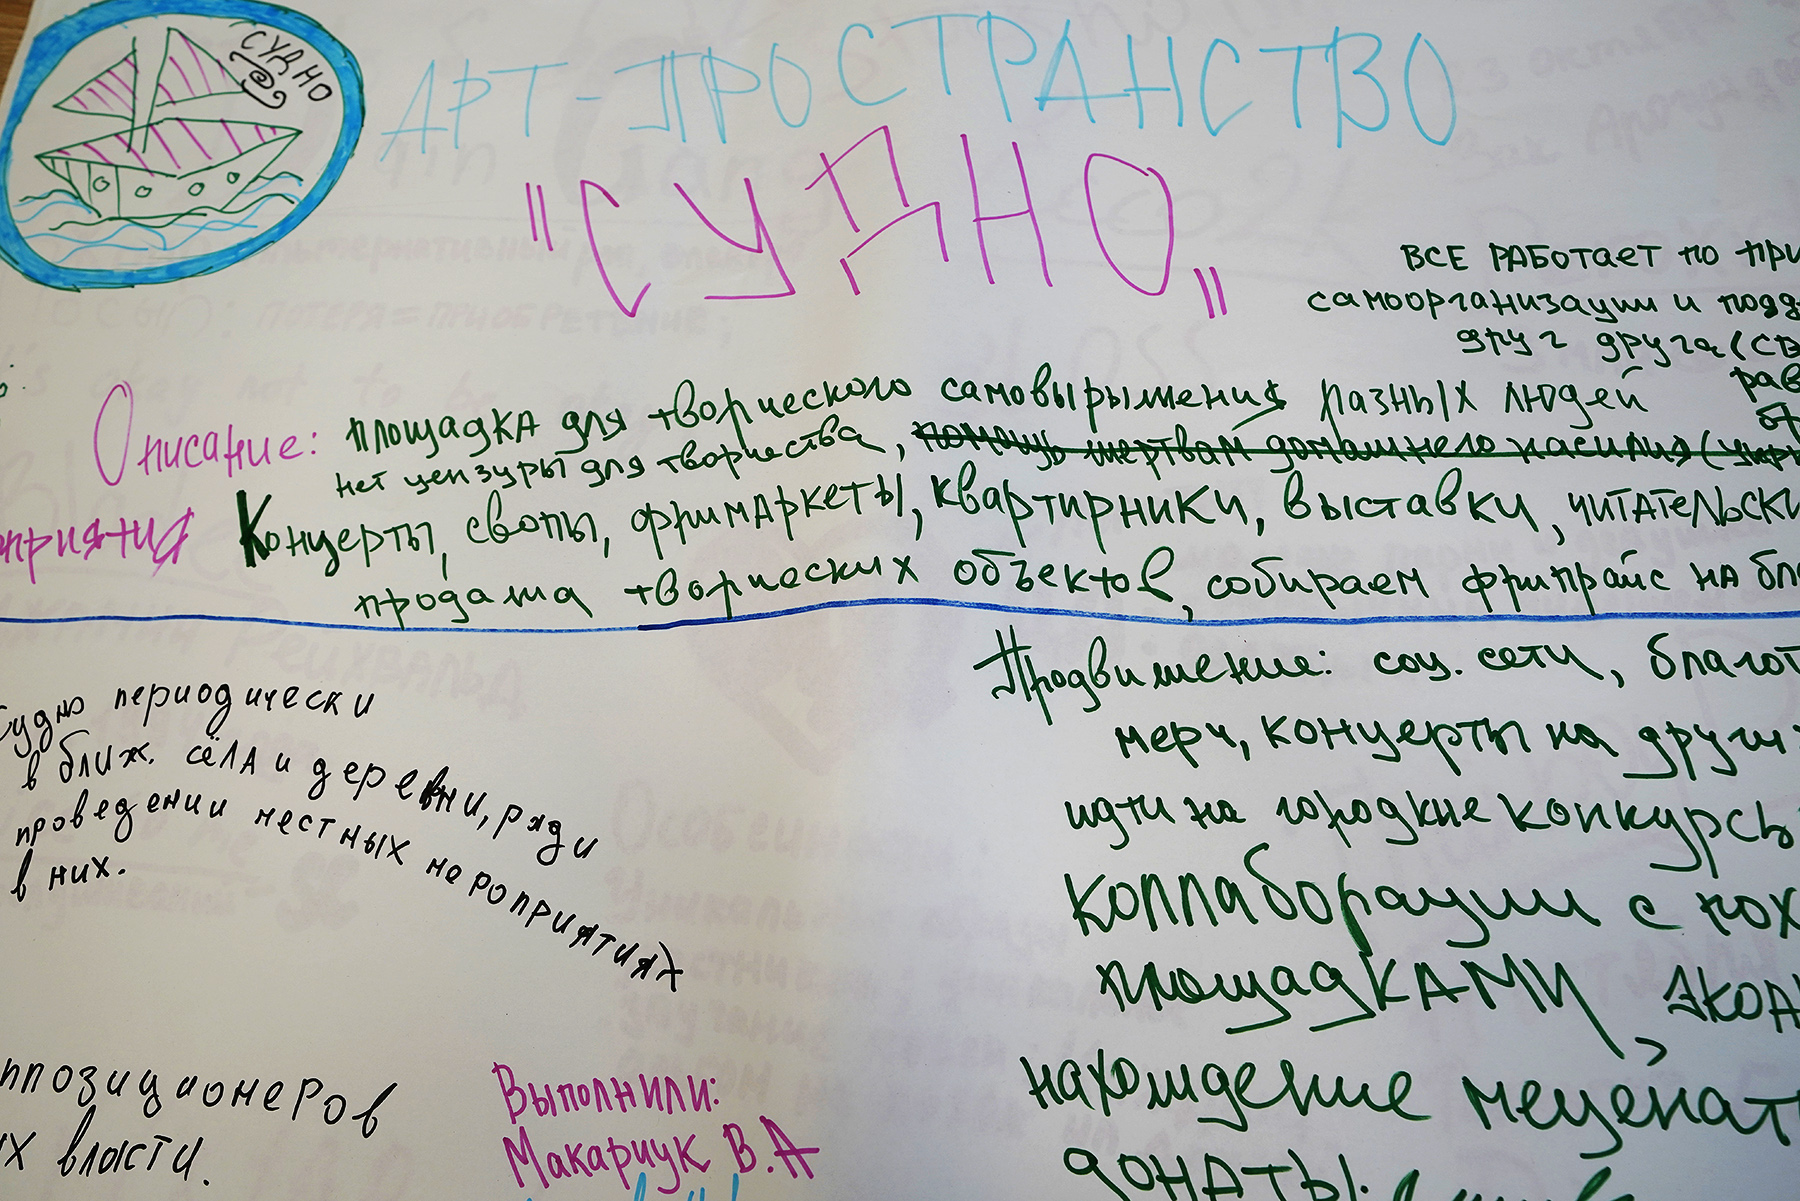 СУДНО
АРТ-ПРОСТРАНСТВО
"СУДНО"
ВСЕ РАБОТАЕТ ПО ПРИ
самоорганизации и подд
друг друга (св
рав
Описание: площадка для творческого самовырыжения разных людей
нет цензуры для творчества, помощь жертвам домашнего насилия (укр
оприятия Концерты, свопы, фримаркеты, квартирники, выставки, читательски
продажа творческих объектов, собираем фрипрайс на бла
Судно периодически
в ближ. сёла и деревни, ряди
проведении местных мероприятиях
в них.
Продвижение: соц. сети, благот
мерч, концерты на други
идти на городкие конкурсы
коллаборации с пох
площадками,
нахождение меценат
донаты.
ппозиционеров
их власти.
Выполнили:
Макарчук В.А